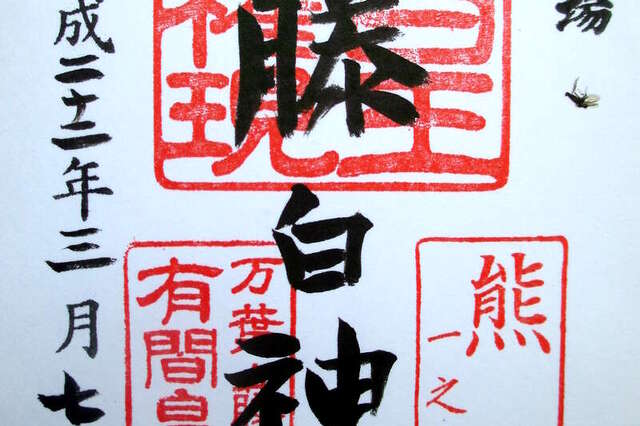 場
藤白神
熊
一之
万葉
有間
成二十二年三月七